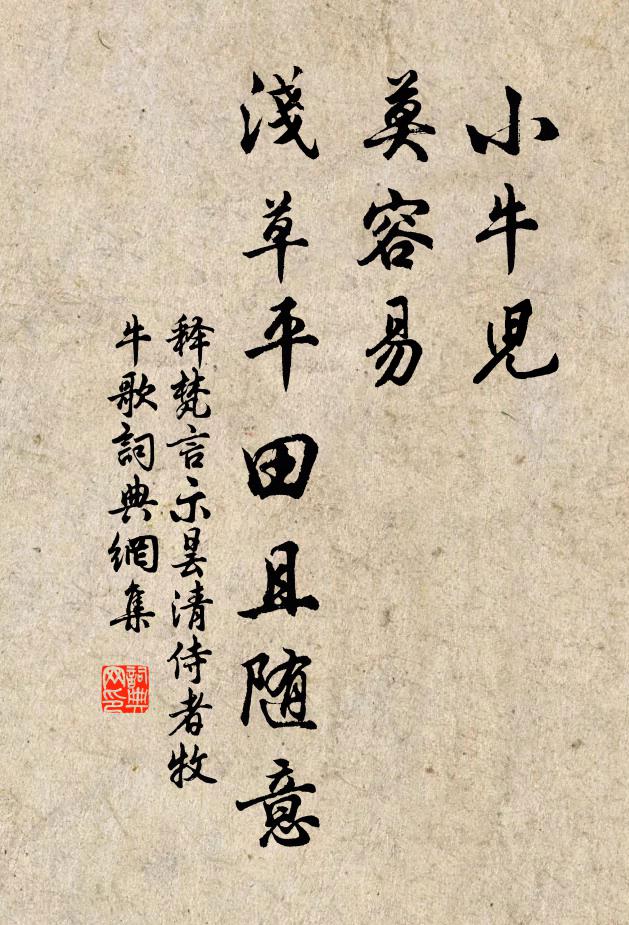 小牛児
莫容易
淺草平田且随意
释梵言示昙清侍者牧
牛歌詞典網集
詞典
网印